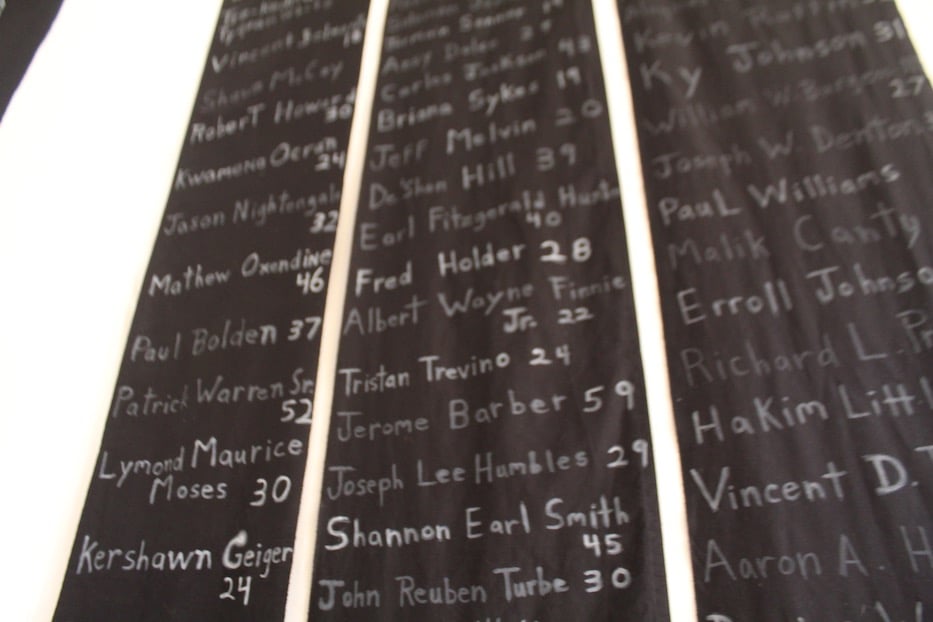 Vincent
Shawn McCoy
Robert Howard
30
Kwamena Ocran
24
Jason Nightengale
32
Mathew Oxendine
46
Paul Bolden 37
Patrick Warren Sr.
52
Lymond Maurice
Moses 30
Kershawn Geiger
24
Carlos Jackson 43
Briana Sykes 19
Jeff Melvin 20
De'Shon Hill 39
Earl Fitzgerald
40
Fred Holder 28
Albert Wayne Finnie
Jr. 22
Tristan Trevino 24
Jerome Barber 59
Joseph Lee Humbles 29
Shannon Earl Smith
45
John Reuben Turbe 30
Kevin
Ky Johnson 31
William W.
27
Joseph W. Denton
Paul Williams
Malik Canty
Erroll Johnso
Richard L. Pr
Hakim Littl
Vincent D.
Aaron A. H